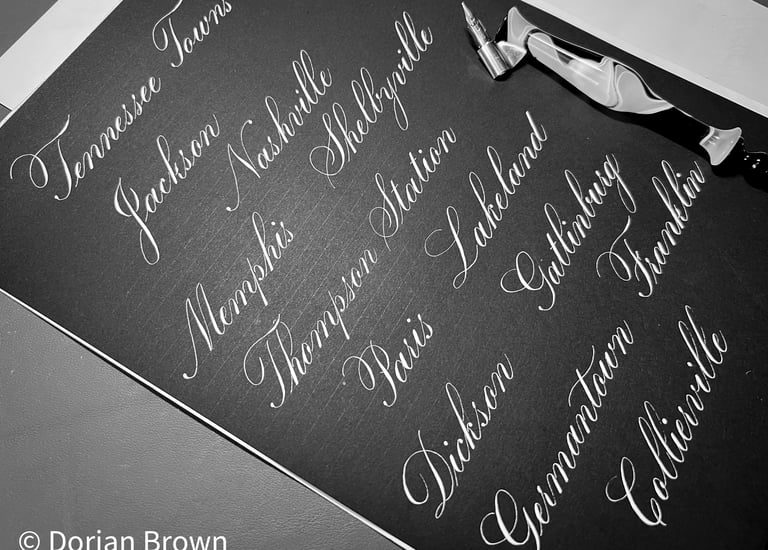 Tennessee Towns
Jackson
Nashville
Memphis Shelbyville
Thompson Station
Paris Lakeland
Dickson Gatlinburg
Germantown Franklin
Collierville
© Dorian Brown